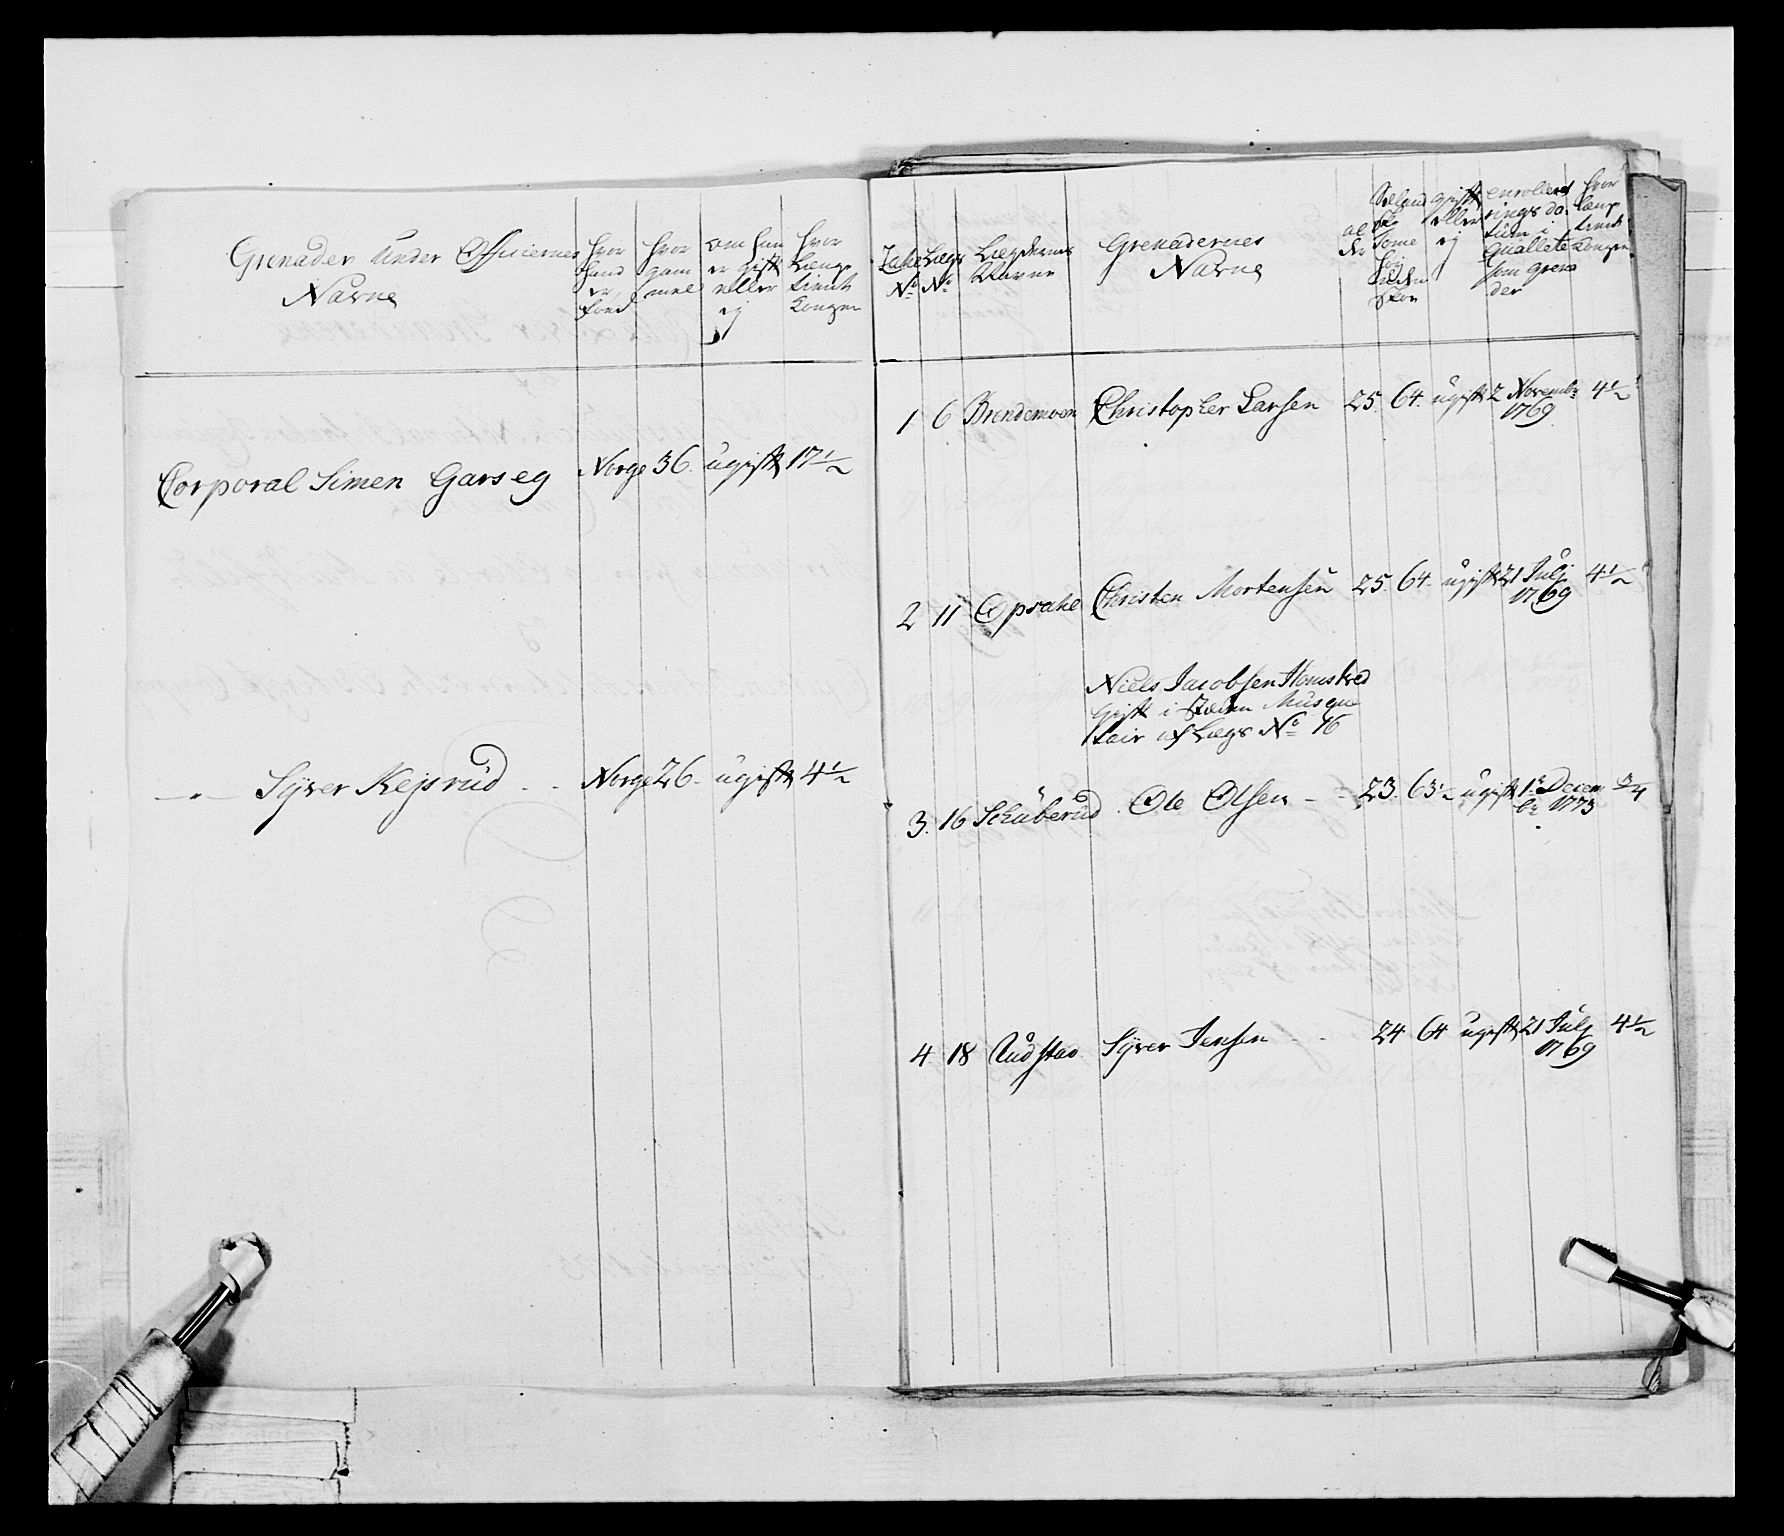 Grenader Under Officiernes
Navne
hvor
hand
er
fød
hvor
gam
mel
om han
er gift
eller
ej
hvor
Længe
tient
Kongen
Corporal Simen Garseg Norge 36. ugift 17 1/2
Syver Kejsrud Norge 26 - ugift 4 1/2
No No
Lægdernes
Navne
Grenadernes
Navne
al
der
gift
eller
ej
enrollerings da
tum i
Qualleté
som grena
der
hvor
længe
tient
Kongen
1 6 Brendemoen Christopher Larsen 25. 64. ugift 2 Novembr 1769 4 1/2
2 11 Opsahl Christen Mortensen 25. 64. ugift 21 Julj 1769 4 1/2
Niels Jacobsen
gift i steden Musque
tair af Lægs No 16
3. 16 Schüberud Ole Olsen - 23. 63 1/2 ugift 1 Decem
br 1773 3/4
4 18 Rudstad Syver Jensen - 24 64 ugift 21 Julj 1769 4 1/2